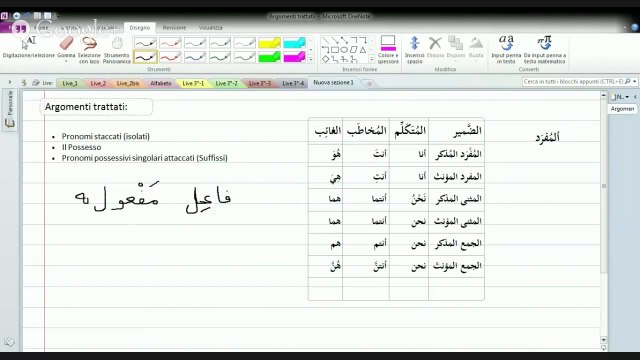 Argomenti trattati - Microsoft OneNote
Home
Disegno
Revisione
Visualizza
Digitazione/selezione
Gomma
Selezione con lazo
Panoramica
Strumenti
Colore e spessore
Inserisci forme
Elimina
Disponi
Ruota
Modifica
Input penna a testo
Input penna da testo matematico
Converti
Live:
Live_1
Live_2
Live_2bis
Alfabeto
Live 3^-1
Live 3^-2
Live 3^-3
Live 3^-4
Nuova sezione 1
Cerca in tutti i blocchi appunti (CTRL+E)
Personale
Argomen
Argomenti trattati:
Pronomi staccati (isolati)
Il Possesso
Pronomi possessivi singolari attaccati (Suffissi)
فاعِل مَفْعول به
الضَّمير المُتَكَلِّم المُخاطَب الغائِب
المُفْرَد المُذكر أنا أنتَ هُوَ
المفرد المؤنث أنا أنتِ هِيَ
المثنى المذكر نَحْنُ أنتما هما
المثنى المؤنث نحن أنتما هما
الجمع المذكر نحن أنتم هم
الجمع المؤنث نحن أنتنَّ هُنَّ
ألمُفرَد